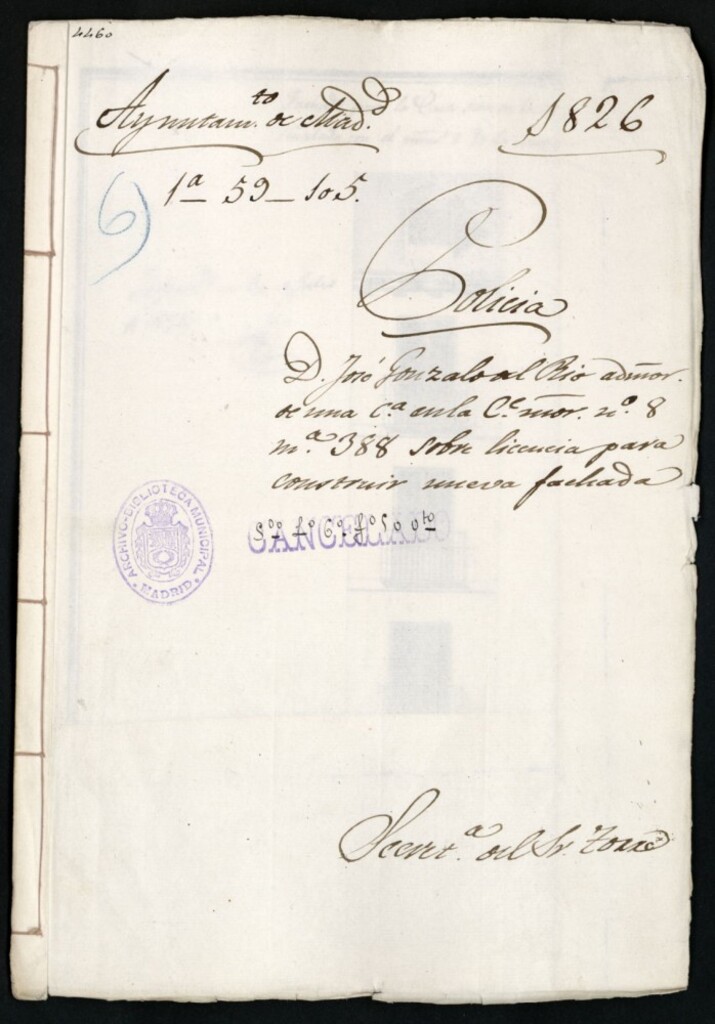 4460
Ayuntam.to de Mad.d 1826
1ª 59 - 105.
6)
Policia
D. José Gonzalo del Rio admor.
de una c.ª en la C.e mor. n.º 8
m.ª 388 sobre licencia para
construir nueva fachada
CANCELADO
ARCHIVO-BIBLIOTECA MUNICIPAL
MADRID
Secret.ª del Sr.